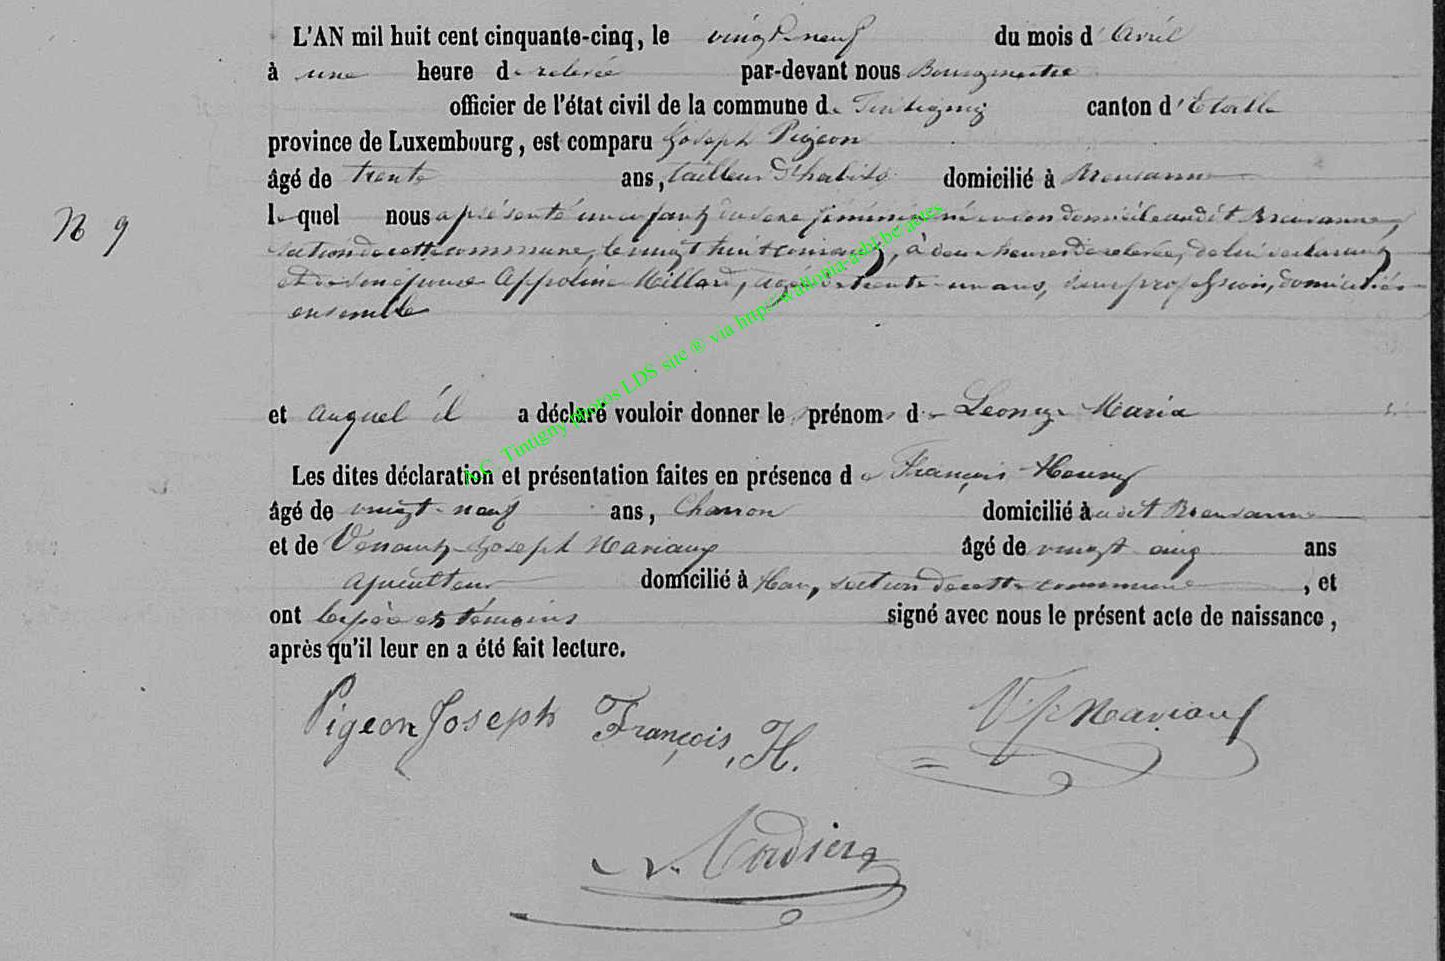 L'AN mil huit cent cinquante-cinq, le vingt-neuf du mois d'Avril
à une heure de relevée par-devant nous Bourgmestre
officier de l'état civil de la commune de Tintigny canton d'Etalle
province de Luxembourg, est comparu Joseph Pigeon
âgé de trente ans, tailleur d'habits domicilié à Breuvanne
N 9
lequel nous a présenté un enfant du sexe féminin né en son domicile audit Breuvanne,
section de cette commune, le vingt huit courant, à deux heures de relevée, de lui déclarant
et de son épouse Appoline Millard, agée de trente un ans, sans profession, domiciliés
ensemble
et auquel il a déclaré vouloir donner les prénoms de Maria
Les dites déclaration et présentation faites en présence de François
âgé de vingt-neuf ans, Charron domicilié audit Breuvanne
et de Joseph Mariaux âgé de vingt cinq ans
domicilié à Han, section de cette commune, et
ont le père et témoins signé avec nous le présent acte de naissance,
après qu'il leur en a été fait lecture.
Pigeon Joseph François, H. V. J. Mariaux
A.C. Tintigny photos LDS site ® via http://wallonia-asbl.be/actes